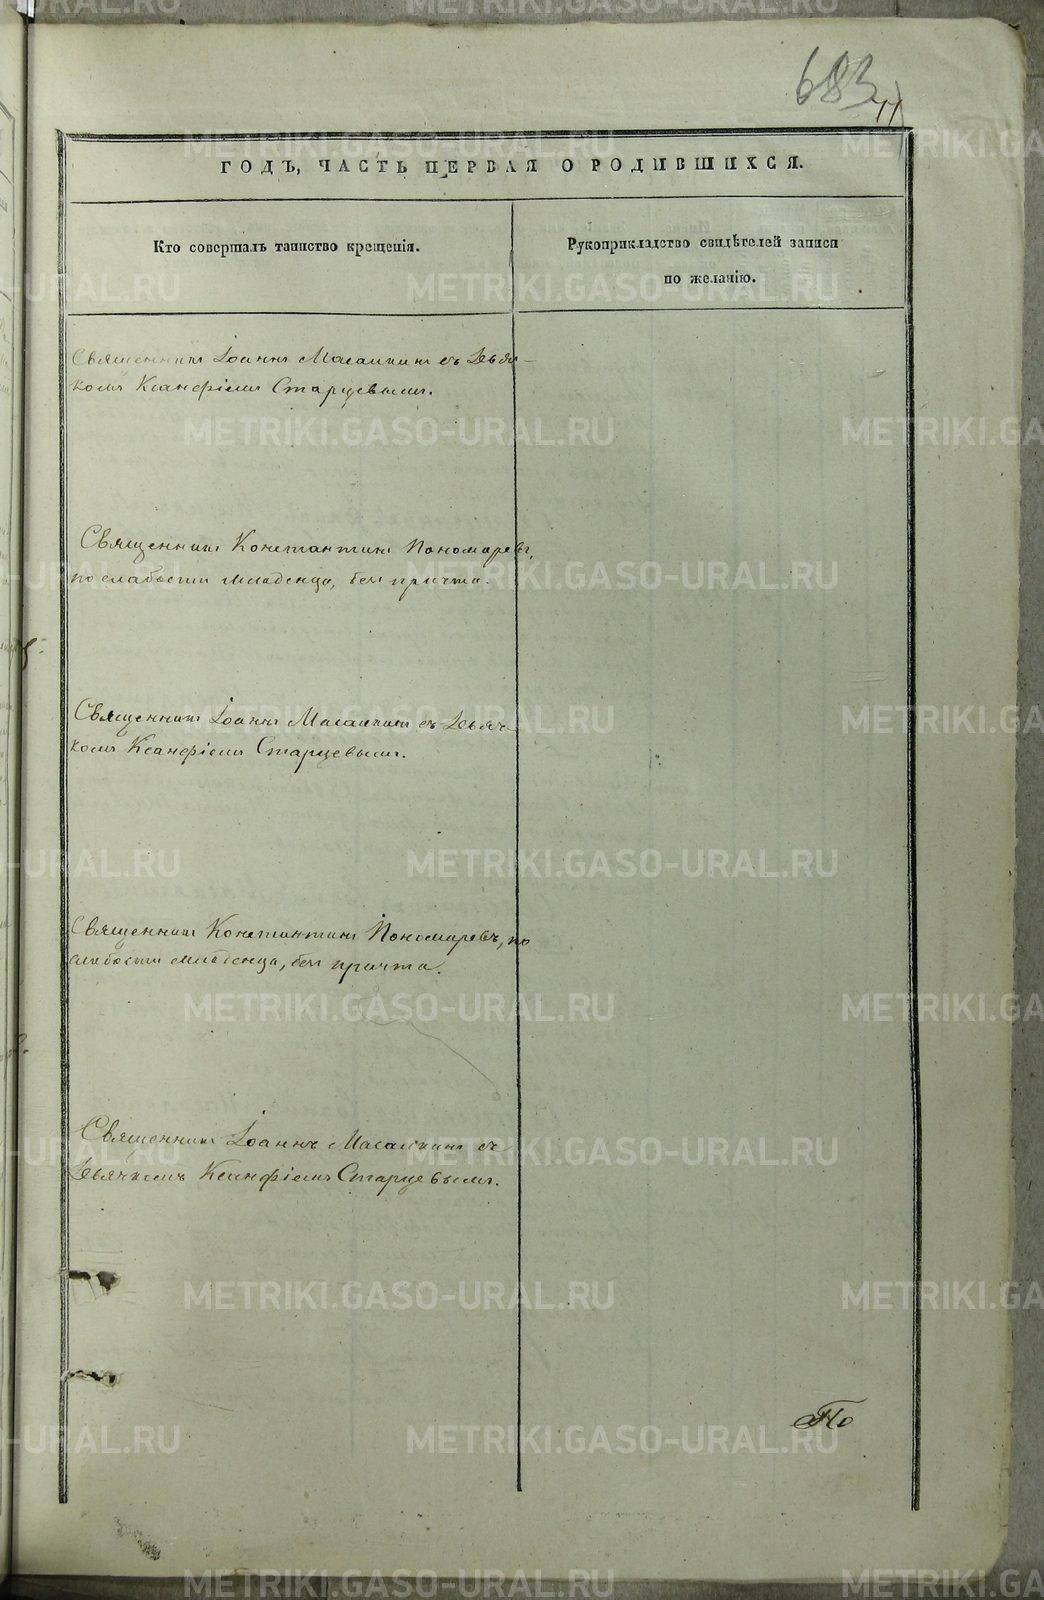 683
71
ГОДЪ, ЧАСТЬ ПЕРВАЯ О РОДИВШИХСЯ.
Кто совершалъ таинство крещенія.
Рукоприкладство свидѣтелей записи
по желанію.
Священникъ Іоаннъ Масалкинъ съ Дьяч-
комъ Ксанфіемъ Старцевымъ.
Священникъ Константинъ Пономаревъ,
по слабости младенца, безъ причта.
Священникъ Іоаннъ Масалкинъ съ Дьяч-
комъ Ксанфіемъ Старцевымъ.
Священникъ Константинъ Пономаревъ, по
слабости младенца, безъ причта.
Священникъ Іоаннъ Масалкинъ съ
Дьячкомъ Ксанфіемъ Старцевымъ.
По
METRIKI.GASO-URAL.RU